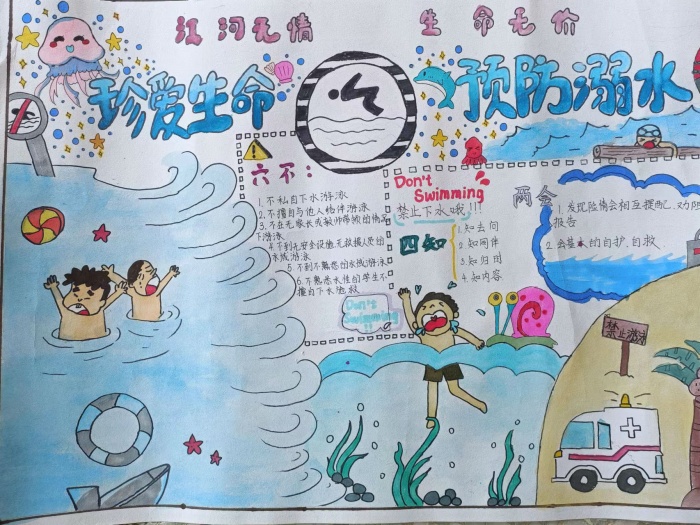 江河无情 生命无价
珍爱生命 预防溺水
六不:
1.不私自下水游泳
2.不擅自与他人结伴游泳
3.不在无家长或教师带领的情况
下游泳
4.不到无安全设施、无救援人员的
水域游泳
5.不到不熟悉的水域游泳
6.不熟悉水性的学生不
擅自下水施救
Don't
Swimming
!!
Don't
Swimming
禁止下水哦!!!
四知
1.知去向
2.知同伴
3.知归时
4.知内容
两会
1.发现险情会相互提醒、劝阻
报告
2.会基本的自护、自救
禁止游泳